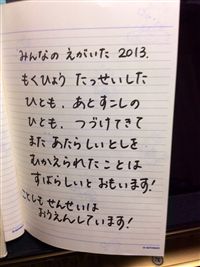 みんなの えがいた 2013.
もくひょう たっせいした
ひとも、あとすこしの
ひとも、つづけてきて
また あたらしいとしを
むかえられたことは
すばらしいと おもいます!
ことしも せんせいは
おうえんしています!